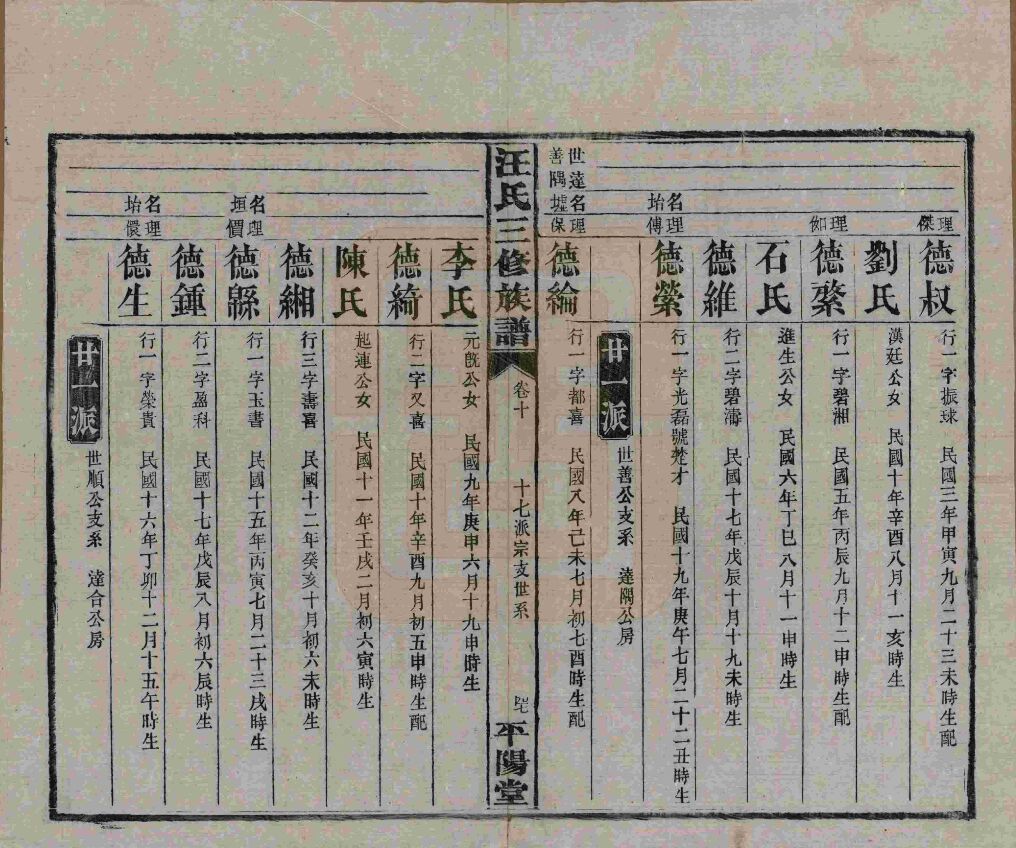 理傑
德叔
行一字振球　民國三年甲寅九月二十三未時生配
劉氏
漢廷公女　民國十年辛酉八月十一亥時生
理如
德縏
行一字碧湘　民國五年丙辰九月十二申時生配
石氏
進生公女　民國六年丁巳八月十一申時生
德維
行二字碧濤　民國十七年戊辰十月十九未時生
名坮
理傅
德縈
行一字光磊號楚才　民國十九年庚午七月二十二丑時生
廿一派
世善公支系　達隅公房
世善
達隅
名墟
理保
德綸
行一字都喜　民國八年己未七月初七酉時生配
汪氏三修族譜
卷十
十七派宗支世系
平陽堂
李氏
元旣公女　民國九年庚申六月十九申時生
德綺
行二字又喜　民國十年辛酉九月初五申時生配
陳氏
起連公女　民國十一年壬戌二月初六寅時生
德緗
行三字壽喜　民國十二年癸亥十月初六未時生
名垣
理價
德緜
行一字玉書　民國十五年丙寅七月二十三戌時生
德鍾
行二字盈科　民國十七年戊辰八月初六辰時生
名坮
理儇
德生
行一字榮貴　民國十六年丁卯十二月十五午時生
廿一派
世順公支系　達合公房